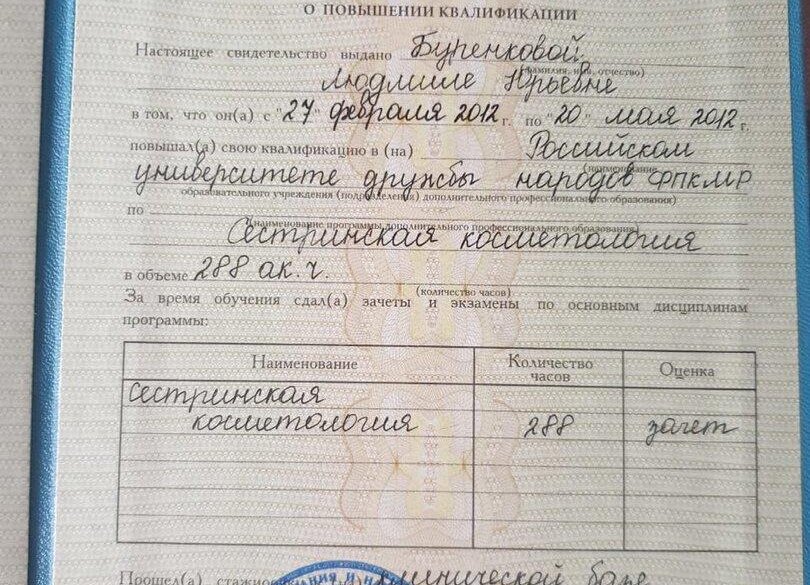 О ПОВЫШЕНИИ КВАЛИФИКАЦИИ
Настоящее свидетельство выдано Буренковой
(фамилия, имя, отчество)
Людмиле Юрьевне
в том, что он(а) с "27" февраля 2012 г. по "20" мая 2012 г.
повышал(а) свою квалификацию в (на) Российском
(наименование
университете дружбы народов ФПКМР
образовательного учреждения (подразделения) дополнительного профессионального образования)
по
(наименование программы дополнительного профессионального образования)
Сестринская косметология
в объеме 288 ак.ч.
(количество часов)
За время обучения сдал(а) зачеты и экзамены по основным дисциплинам
программы:
Наименование Количество часов Оценка
Сестринская
косметология 288 зачет
Прошел(а) клинической базе